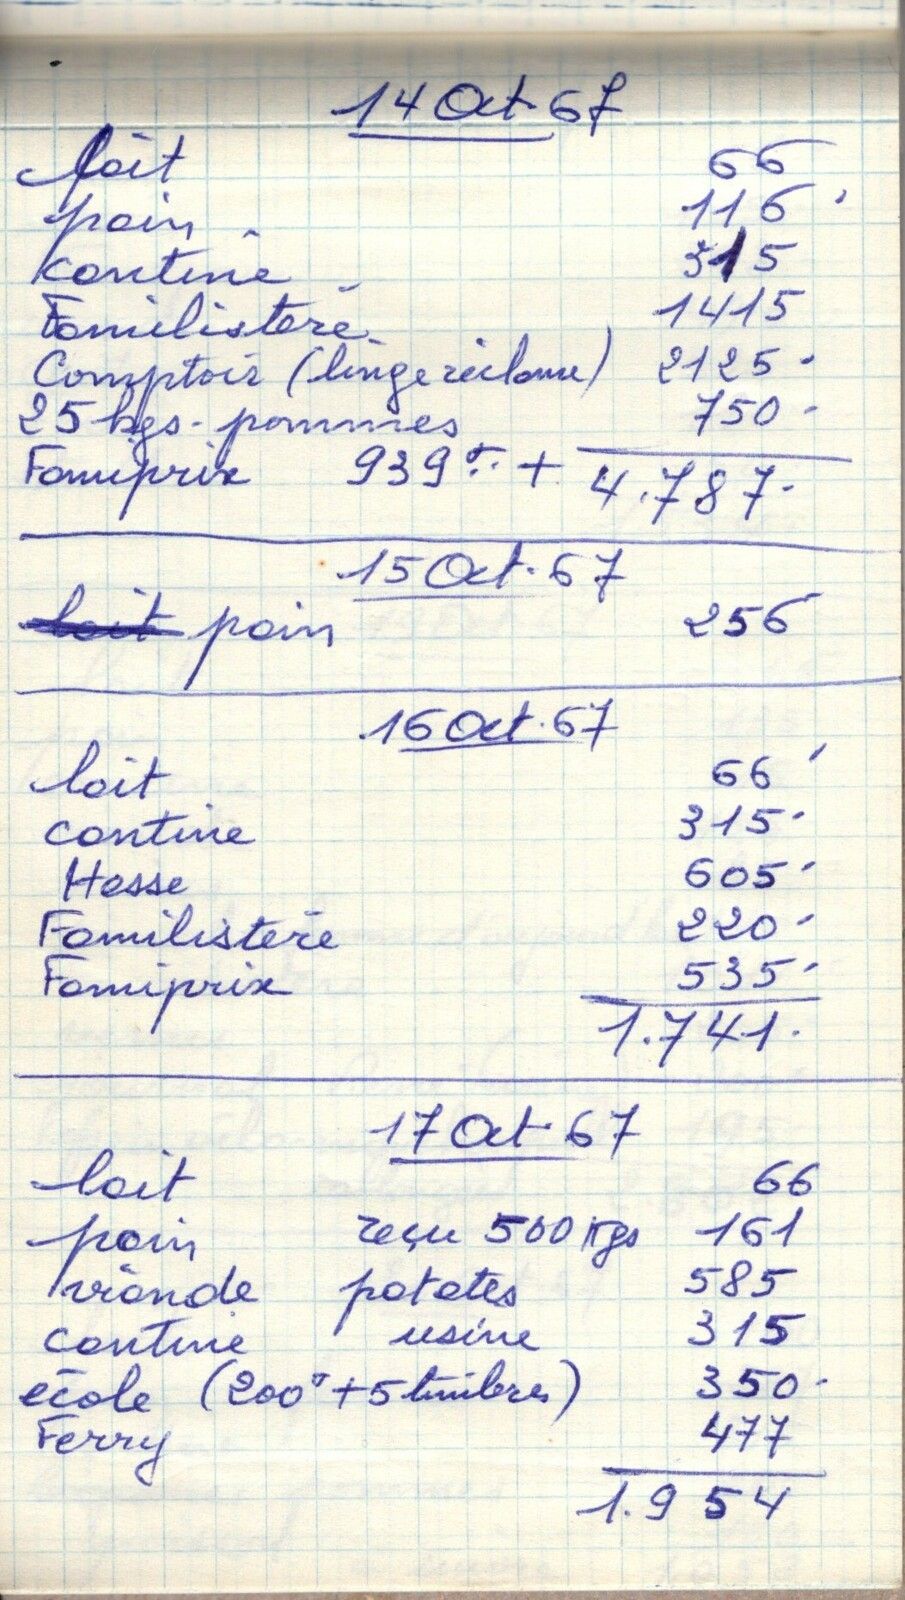 14 Oct. 67
lait 66
pain 116
cantine 315
Familistère 1415
Comptoir (linge réclame) 2125.
25 kgs. pommes 750.
Famiprix 939 + 4.787.
15 Oct. 67
lait pain 256
16 Oct. 67
lait 66
cantine 315.
Hesse 605
Familistère 220.
Famiprix 535.
1.741.
17 Oct. 67
lait 66
pain reçu 500 Kgs 161
viande patates 585
cantine usine 315
école (200 + 5 timbres) 350.
Ferry 477
1.954